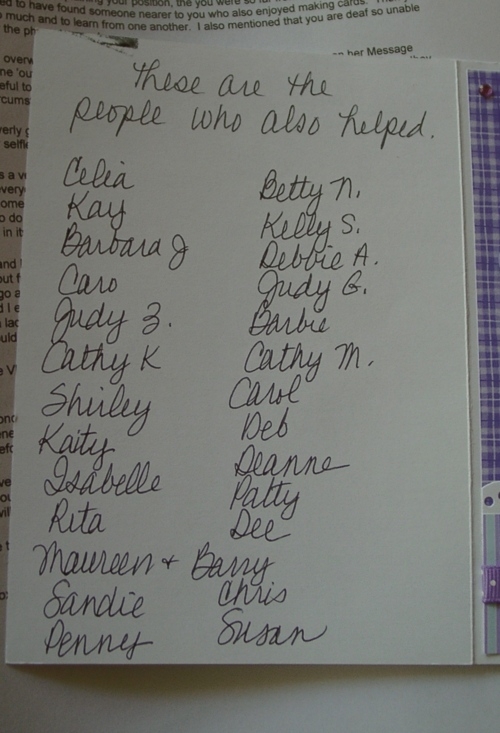 to have found someone nearer to you who also enjoyed making cards.
much and to learn from one another. I also mentioned that you are deaf so unable
the ph
her Message
These are the
people who also helped.
Celia
Kay
Barbara J
Caro
Judy Z.
Cathy K
Shirley
Kaity
Isabelle
Rita
Maureen + Barry
Sandie
Penny
Betty N.
Kelly S.
Debbie A.
Judy G.
Barbie
Cathy M.
Carol
Deb
Deanne
Patty
Dee
Chris
Susan